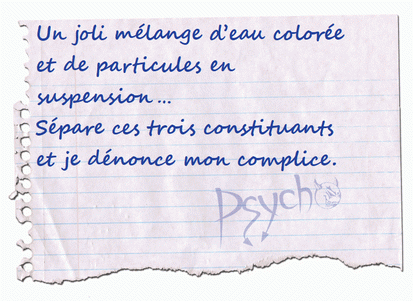 Un joli mélange d'eau colorée
et de particules en
suspension...
Sépare ces trois constituants
et je dénonce mon complice.
Psycho